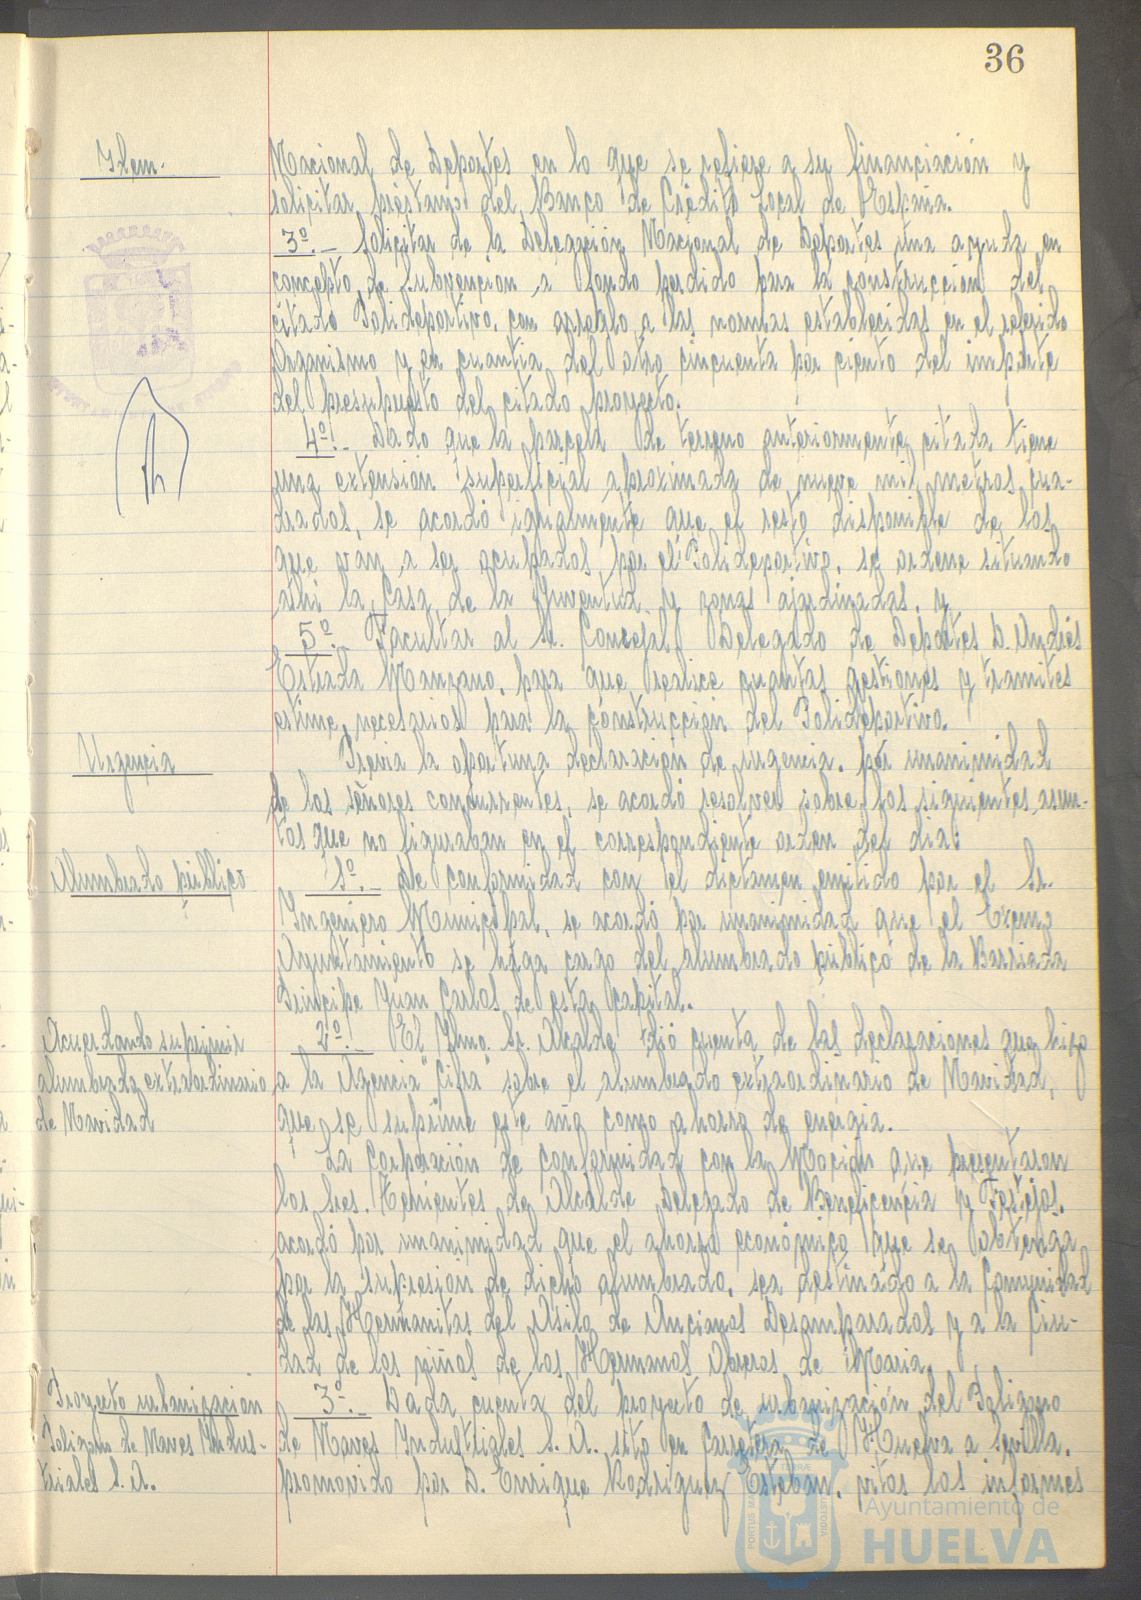 36
Idem.-
Nacional de Deportes en lo que se refiere a su financiación y
solicitar préstamo del Banco de Crédito Local de España.
3º.- Solicitar de la Delegación Nacional de Deportes una ayuda en
concepto de subvención a fondo perdido para la construcción del
citado Polideportivo, con arreglo a las normas establecidas en el referido
Organismo y en cuantía del otro cincuenta por ciento del importe
del presupuesto del citado proyecto.
4º.- Dado que la parcela de terreno anteriormente citada tiene
una extensión superficial aproximada de nueve mil metros cua-
drados, se acordó igualmente que el resto disponible de los
que van a ser ocupados por el Polideportivo, se ordene situando
allí la Casa de la Juventud y zonas ajardinadas, y
5º.- Facultar al Sr. Concejal Delegado de Deportes D. Andrés
Estrada Manzano, para que realice cuantas gestiones y tramites
estime necesarios para la construcción del Polideportivo.
Urgencia
Previa la oportuna declaración de urgencia, por unanimidad
de los señores concurrentes, se acordó resolver sobre los siguientes asun-
tos que no figuraban en el correspondiente orden del dia:
Alumbrado público
1º.- De conformidad con el dictamen emitido por el Sr.
Ingeniero Municipal, se acordó por unanimidad que el Excmo
Ayuntamiento se haga cargo del alumbrado público de la Barriada
Principe Juan Carlos de esta capital.
Acuerdando suprimir
alumbrado extraordinario
de Navidad
2º.- El Ilmo. Sr. Alcalde dió cuenta de las declaraciones que hizo
a la Agencia "Cifra" sobre el alumbrado extraordinario de Navidad,
que se suprime este año como ahorro de energia.
La Corporación de conformidad con la Moción que presentaron
los Sres. Tenientes de Alcalde Delegado de Beneficencia y Festejos,
acordó por unanimidad que el ahorro económico que se obtenga
por la supresión de dicho alumbrado, sea destinado a la Comunidad
de las Hermanitas del Asilo de Ancianos Desamparados y a la Ciu-
dad de los niños de los Hermanos Obreros de Maria.
Proyecto urbanización
Poligono de Naves Indus-
triales S.A.
3º.- Dada cuenta del proyecto de urbanización del Poligono
de Naves Industriales S.A. sito en Carretera de Huelva a Sevilla,
promovido por D. Enrique Rodriguez Esteban, vitos los informes
PORTUS MARIS
ET TERRÆ
CUSTODIA
Ayuntamiento de
HUELVA